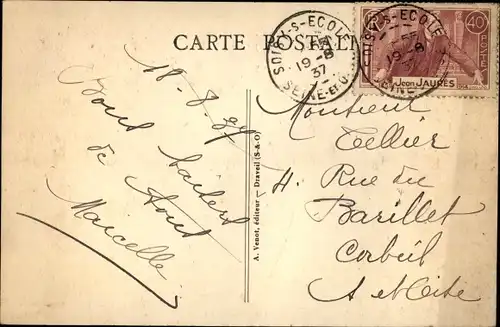 CARTE POSTALE
SOISY-S-ECOLE
19-8
37
SEINE-ET-O.
SOISY-S-ECOLE
19-8
40c
POSTES
Jean JAURÈS
18-8-37
Bons baisers
de tous
Marcelle
A. Venot, éditeur - Draveil (S.-&-O.)
Monsieur
Tellier
4. Rue du
Barillet
Corbeil
S et Oise